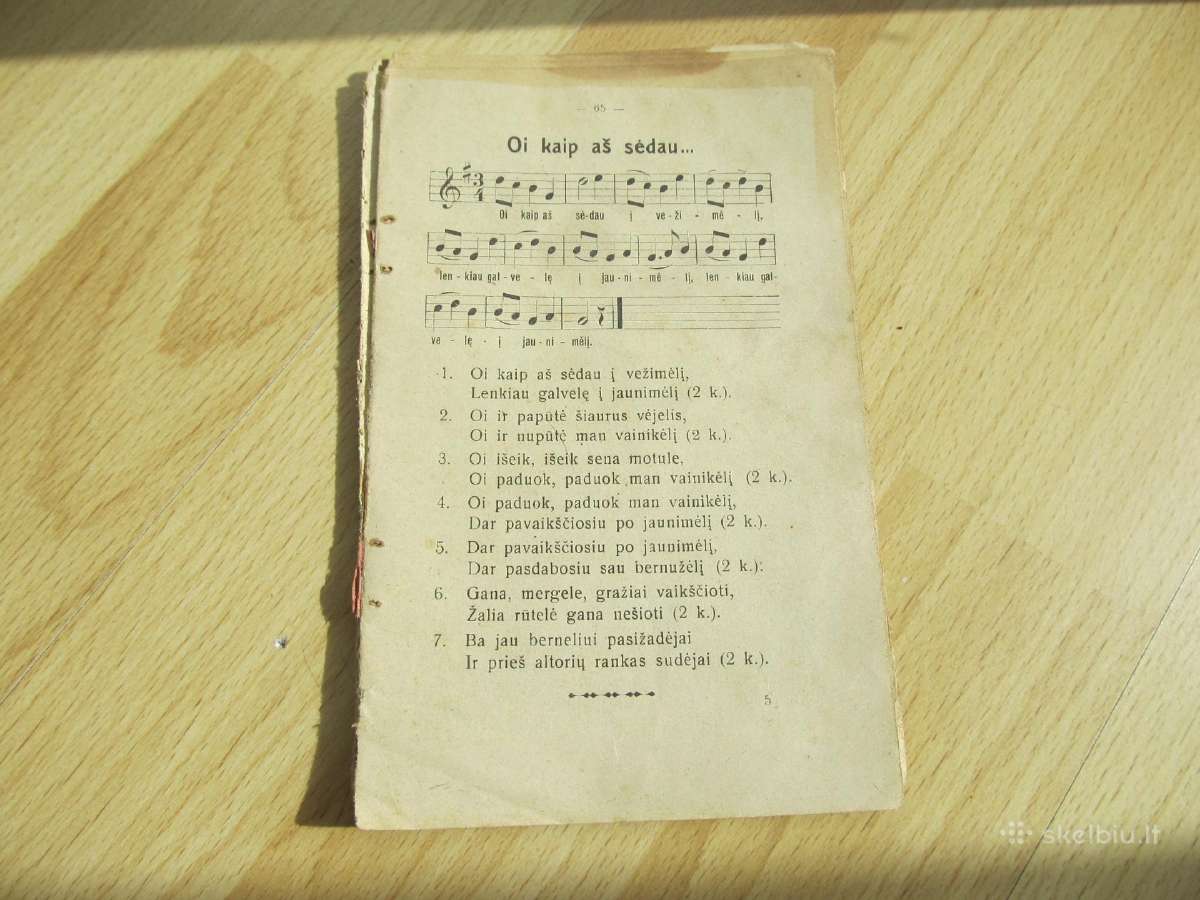 — 65 —
Oi kaip aš sėdau...
3
4
Oi kaip aš sė-dau į ve-ži - mė - lį,
len - kiau gal - ve - lę į jau - ni - mė - lį, len - kiau gal-
ve - lę - į jau - ni - mėlį.
1. Oi kaip aš sėdau į vežimėlį,
Lenkiau galvelę į jaunimėlį (2 k.).
2. Oi ir papūtė šiaurus vėjelis,
Oi ir nupūtė man vainikėlį (2 k.).
3. Oi išeik, išeik sena motule,
Oi paduok, paduok man vainikėlį (2 k.).
4. Oi paduok, paduok man vainikėlį,
Dar pavaikščiosiu po jaunimėlį (2 k.).
5. Dar pavaikščiosiu po jaunimėlį,
Dar pasdabosiu sau bernužėlį (2 k.).
6. Gana, mergele, gražiai vaikščioti,
Žalia rūtelė gana nešioti (2 k.).
7. Ba jau berneliui pasižadėjai
Ir prieš altorių rankas sudėjai (2 k.).
5
skelbiu.lt